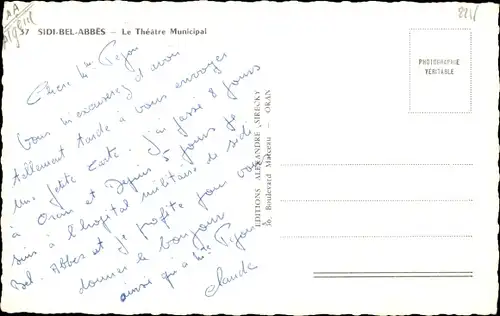 AA
Algérie
37 SIDI-BEL-ABBÈS — Le Théâtre Municipal
PHOTOGRAPHIE
VÉRITABLE
Cher Mr Pejon
Vous m'excuserez d'avoir
tellement tardé à vous envoyer
une petite carte. J'ai passé 8 jours
à Oran et Depuis 5 jours je
suis à l'hopital militaire de sidi
Bel. Abbes et je profite pour vous
donner le bonjour
ainsi qu'a Mme Pejon
Claude
EDITIONS ALEXANDRE SIRECKY
36, Boulevard Marceau — ORAN